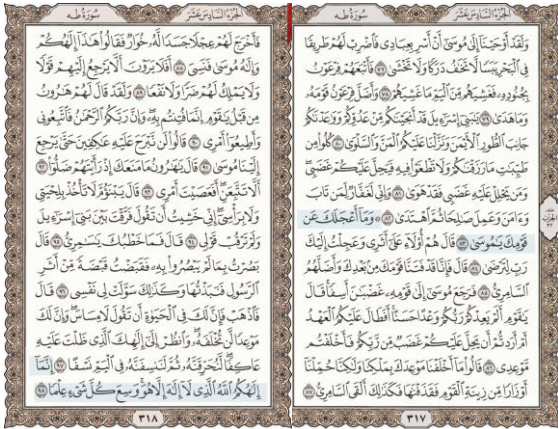 الجُزْءُ السَّادِسَ عَشَرَ سُورَةُ طه
وَلَقَدْ أَوْحَيْنَآ إِلَىٰ مُوسَىٰٓ أَنْ أَسْرِ بِعِبَادِى فَٱضْرِبْ لَهُمْ طَرِيقًا
فِى ٱلْبَحْرِ يَبَسًا لَّا تَخَٰفُ دَرَكًا وَلَا تَخْشَىٰ ٧٧ فَأَتْبَعَهُمْ فِرْعَوْنُ
بِجُنُودِهِۦ فَغَشِيَهُم مِّنَ ٱلْيَمِّ مَا غَشِيَهُمْ ٧٨ وَأَضَلَّ فِرْعَوْنُ قَوْمَهُۥ
وَمَا هَدَىٰ ٧٩ يَٰبَنِىٓ إِسْرَٰٓءِيلَ قَدْ أَنجَيْنَٰكُم مِّنْ عَدُوِّكُمْ وَوَٰعَدْنَٰكُمْ
جَانِبَ ٱلطُّورِ ٱلْأَيْمَنَ وَنَزَّلْنَا عَلَيْكُمُ ٱلْمَنَّ وَٱلسَّلْوَىٰ ٨٠ كُلُوا۟ مِن
طَيِّبَٰتِ مَا رَزَقْنَٰكُمْ وَلَا تَطْغَوْا۟ فِيهِ فَيَحِلَّ عَلَيْكُمْ غَضَبِى
وَمَن يَحْلِلْ عَلَيْهِ غَضَبِى فَقَدْ هَوَىٰ ٨١ وَإِنِّى لَغَفَّارٌ لِّمَن تَابَ
وَءَامَنَ وَعَمِلَ صَٰلِحًا ثُمَّ ٱهْتَدَىٰ ٨٢ ۞ وَمَآ أَعْجَلَكَ عَن
قَوْمِكَ يَٰمُوسَىٰ ٨٣ قَالَ هُمْ أُو۟لَآءِ عَلَىٰٓ أَثَرِى وَعَجِلْتُ إِلَيْكَ
رَبِّ لِتَرْضَىٰ ٨٤ قَالَ فَإِنَّا قَدْ فَتَنَّا قَوْمَكَ مِنۢ بَعْدِكَ وَأَضَلَّهُمُ
ٱلسَّامِرِىُّ ٨٥ فَرَجَعَ مُوسَىٰٓ إِلَىٰ قَوْمِهِۦ غَضْبَٰنَ أَسِفًا قَالَ
يَٰقَوْمِ أَلَمْ يَعِدْكُمْ رَبُّكُمْ وَعْدًا حَسَنًا أَفَطَالَ عَلَيْكُمُ ٱلْعَهْدُ
أَمْ أَرَدتُّمْ أَن يَحِلَّ عَلَيْكُمْ غَضَبٌ مِّن رَّبِّكُمْ فَأَخْلَفْتُم
مَّوْعِدِى ٨٦ قَالُوا۟ مَآ أَخْلَفْنَا مَوْعِدَكَ بِمَلْكِنَا وَلَٰكِنَّا حُمِّلْنَآ
أَوْزَارًا مِّن زِينَةِ ٱلْقَوْمِ فَقَذَفْنَٰهَا فَكَذَٰلِكَ أَلْقَى ٱلسَّامِرِىُّ ٨٧
٣١٧
الجُزْءُ السَّادِسَ عَشَرَ سُورَةُ طه
فَأَخْرَجَ لَهُمْ عِجْلًا جَسَدًا لَّهُۥ خُوَارٌ فَقَالُوا۟ هَٰذَآ إِلَٰهُكُمْ
وَإِلَٰهُ مُوسَىٰ فَنَسِىَ ٨٨ أَفَلَا يَرَوْنَ أَلَّا يَرْجِعُ إِلَيْهِمْ قَوْلًا
وَلَا يَمْلِكُ لَهُمْ ضَرًّا وَلَا نَفْعًا ٨٩ وَلَقَدْ قَالَ لَهُمْ هَٰرُونُ
مِن قَبْلُ يَٰقَوْمِ إِنَّمَا فُتِنتُم بِهِۦ وَإِنَّ رَبَّكُمُ ٱلرَّحْمَٰنُ فَٱتَّبِعُونِى
وَأَطِيعُوٓا۟ أَمْرِى ٩٠ قَالُوا۟ لَن نَّبْرَحَ عَلَيْهِ عَٰكِفِينَ حَتَّىٰ يَرْجِعَ
إِلَيْنَا مُوسَىٰ ٩١ قَالَ يَٰهَٰرُونُ مَا مَنَعَكَ إِذْ رَأَيْتَهُمْ ضَلُّوٓا۟ ٩٢
أَلَّا تَتَّبِعَنِ أَفَعَصَيْتَ أَمْرِى ٩٣ قَالَ يَبْنَؤُمَّ لَا تَأْخُذْ بِلِحْيَتِى
وَلَا بِرَأْسِىٓ إِنِّى خَشِيتُ أَن تَقُولَ فَرَّقْتَ بَيْنَ بَنِىٓ إِسْرَٰٓءِيلَ
وَلَمْ تَرْقُبْ قَوْلِى ٩٤ قَالَ فَمَا خَطْبُكَ يَٰسَٰمِرِىُّ ٩٥ قَالَ
بَصُرْتُ بِمَا لَمْ يَبْصُرُوا۟ بِهِۦ فَقَبَضْتُ قَبْضَةً مِّنْ أَثَرِ
ٱلرَّسُولِ فَنَبَذْتُهَا وَكَذَٰلِكَ سَوَّلَتْ لِى نَفْسِى ٩٦ قَالَ
فَٱذْهَبْ فَإِنَّ لَكَ فِى ٱلْحَيَوٰةِ أَن تَقُولَ لَا مِسَاسَ وَإِنَّ لَكَ
مَوْعِدًا لَّن تُخْلَفَهُۥ وَٱنظُرْ إِلَىٰٓ إِلَٰهِكَ ٱلَّذِى ظَلْتَ عَلَيْهِ
عَاكِفًا لَّنُحَرِّقَنَّهُۥ ثُمَّ لَنَنسِفَنَّهُۥ فِى ٱلْيَمِّ نَسْفًا ٩٧ إِنَّمَآ
إِلَٰهُكُمُ ٱللَّهُ ٱلَّذِى لَآ إِلَٰهَ إِلَّا هُوَ وَسِعَ كُلَّ شَىْءٍ عِلْمًا ٩٨
٣١٨